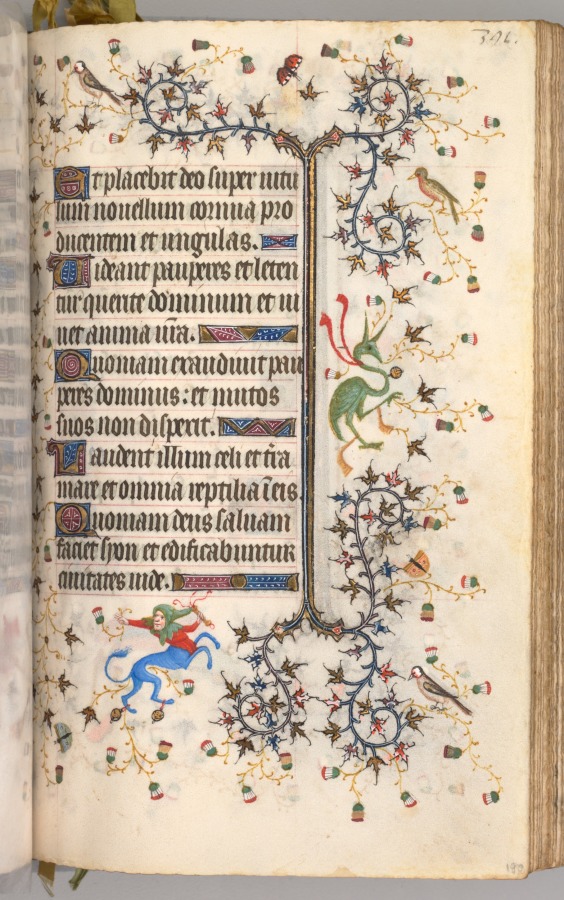 394.
Et placebit deo super uitu
lum nouellum cornua pro
ducentem et ungulas.
Uideant pauperes et leten
tur querite dominum et ui
uet anima ur̄a.
Quoniam exaudiuit pau
peres dominus: et uinctos
suos non dispexit.
Laudent illum celi et t̄ra
mare et omnia reptilia ī eis.
Quoniam deus saluam
faciet syon et edificabuntur
ciuitates iude.